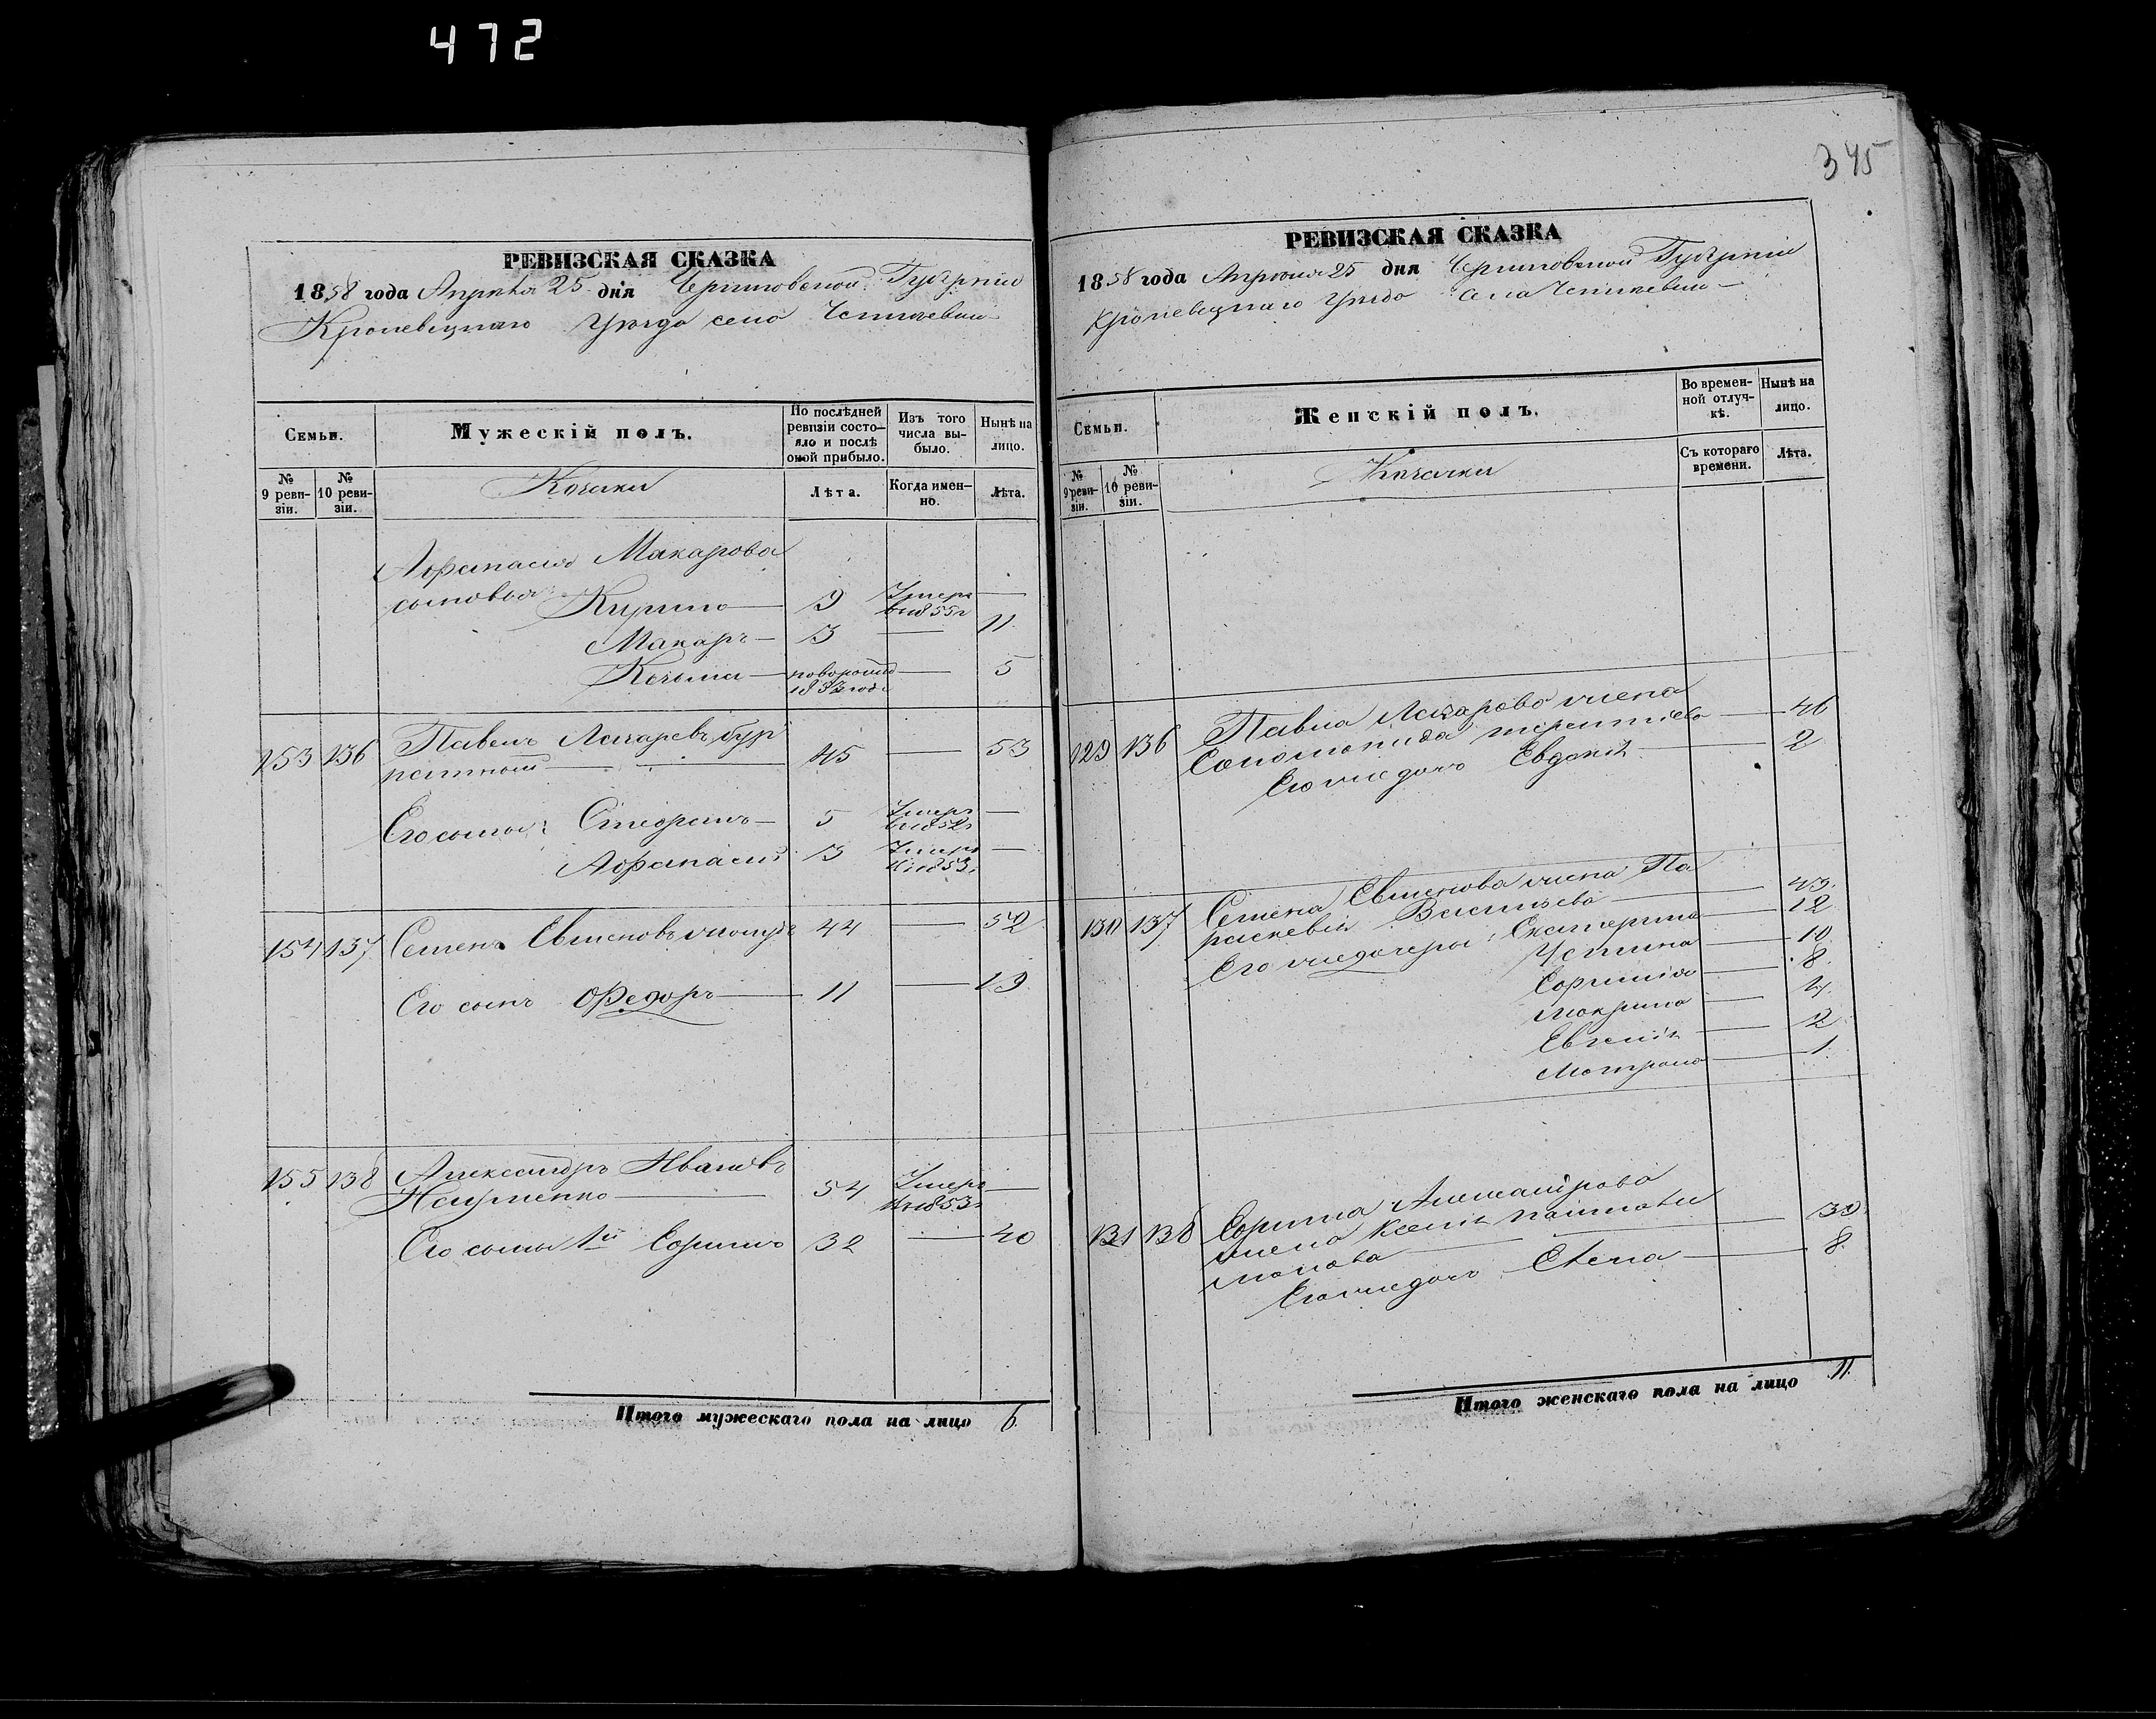 472
345
РЕВИЗСКАЯ СКАЗКА
1858 года Апрѣля 25 дня Черниговской Губерніи
Кролевецкаго Уѣзда село
Семьи.
Мужескій полъ.
По послѣдней ревизіи состояло и послѣ оной прибыло.
Изъ того числа выбыло.
Нынѣ на лицо.
№ 9 ревизіи.
№ 10 ревизіи.
Козаки
Лѣта.
Когда именно.
Лѣта.
Афанасія Макарова
сыновья Кирило — 9 Умеръ в 1855 г —
Макаръ — 3 — 11
Козьма — новорожд — 5
153 136 Павелъ Лазаревъ
45 — 53
Его сыны: Стефанъ — 5 Умеръ в 1852 г —
Афанасій 3 Умеръ в 1853 г —
154 137 Семенъ Евменовъ 44 — 52
Его сынъ Федоръ — 11 — 19
155 138 Александръ Ивановъ
Науменко — 54 Умеръ в 1853 г —
Его сыны 1й Ефимъ 32 — 40
Итого мужескаго пола на лицо 6
РЕВИЗСКАЯ СКАЗКА
1858 года Апрѣля 25 дня Черниговской Губерніи
Кролевецкаго Уѣзда села
Семьи.
Женскій полъ.
Во временной отлучкѣ.
Нынѣ на лицо.
№ 9 ревизіи.
№ 10 ревизіи.
Козачки
Съ котораго времени.
Лѣта.
129 136 Павла Лазарева жена
Соломонида Терентіева — 46
Его же дочь Евдокія — 2
130 137 Семена Евменова жена Па
раскевія Васильева — 43
Его же дочери: Екатерина — 12
Устина — 10
Ефимія — 8
Макрина — 4
Евгенія — 2
Мотрона — 1
131 138 Ефима Александрова
жена Ксенія
— 39
Его же дочь Елена — 8
Итого женскаго пола на лицо 11